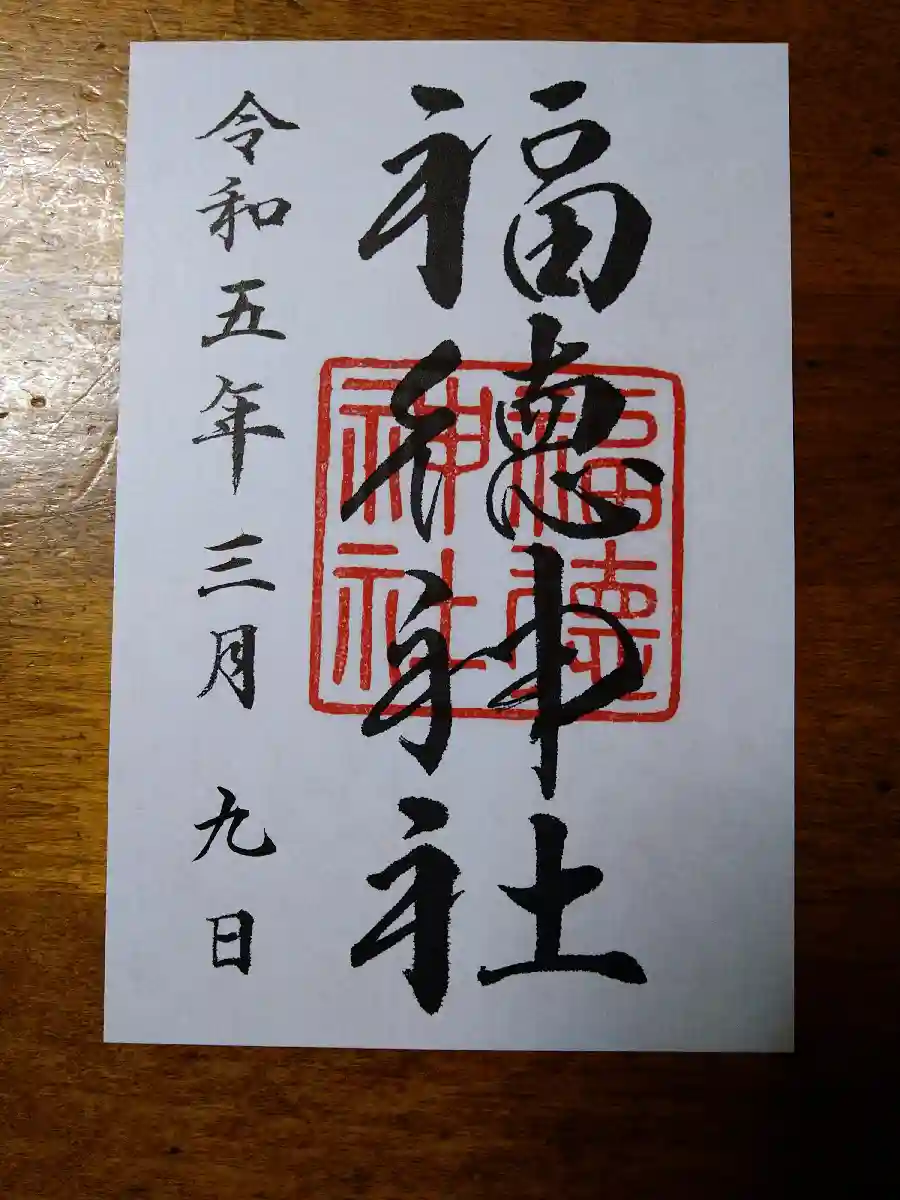 福徳神社
令和五年三月九日
福徳
神社